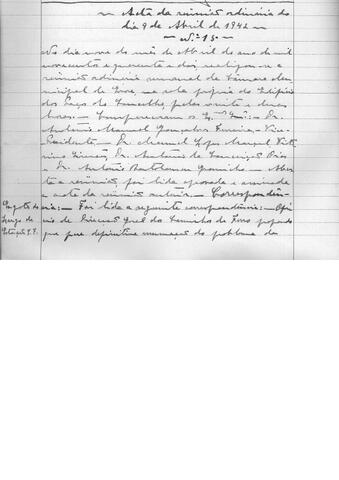 Acta da reunião ordinária do
dia 9 de Abril de 1942
Nº 15
No dia nove do mês de Abril do ano de mil
novecentos e quarenta e dois, realizou-se a
reunião ordinária semanal da Câmara Mu-
nicipal de, na sala própria do Edifício
dos Paços do Concelho, pelas vinte e duas
horas. — Compareceram os Exmos: — Dr.
António Manuel Gonçalves Ferreira — Vice-
Presidente, — Dr. Manuel Lopes Marçal
, Dr. António da
e Dr. António Bartolomeu Gromicho. — Aber-
ta a reunião, foi lida aprovada e assinada
a acta da reunião anterior. — Corresponden-
cia: — Foi lida a seguinte correspondência: — Ofí
cio da Direcção Geral dos Caminhos de Ferro
que para definitiva do problema da
Largo da
Estação